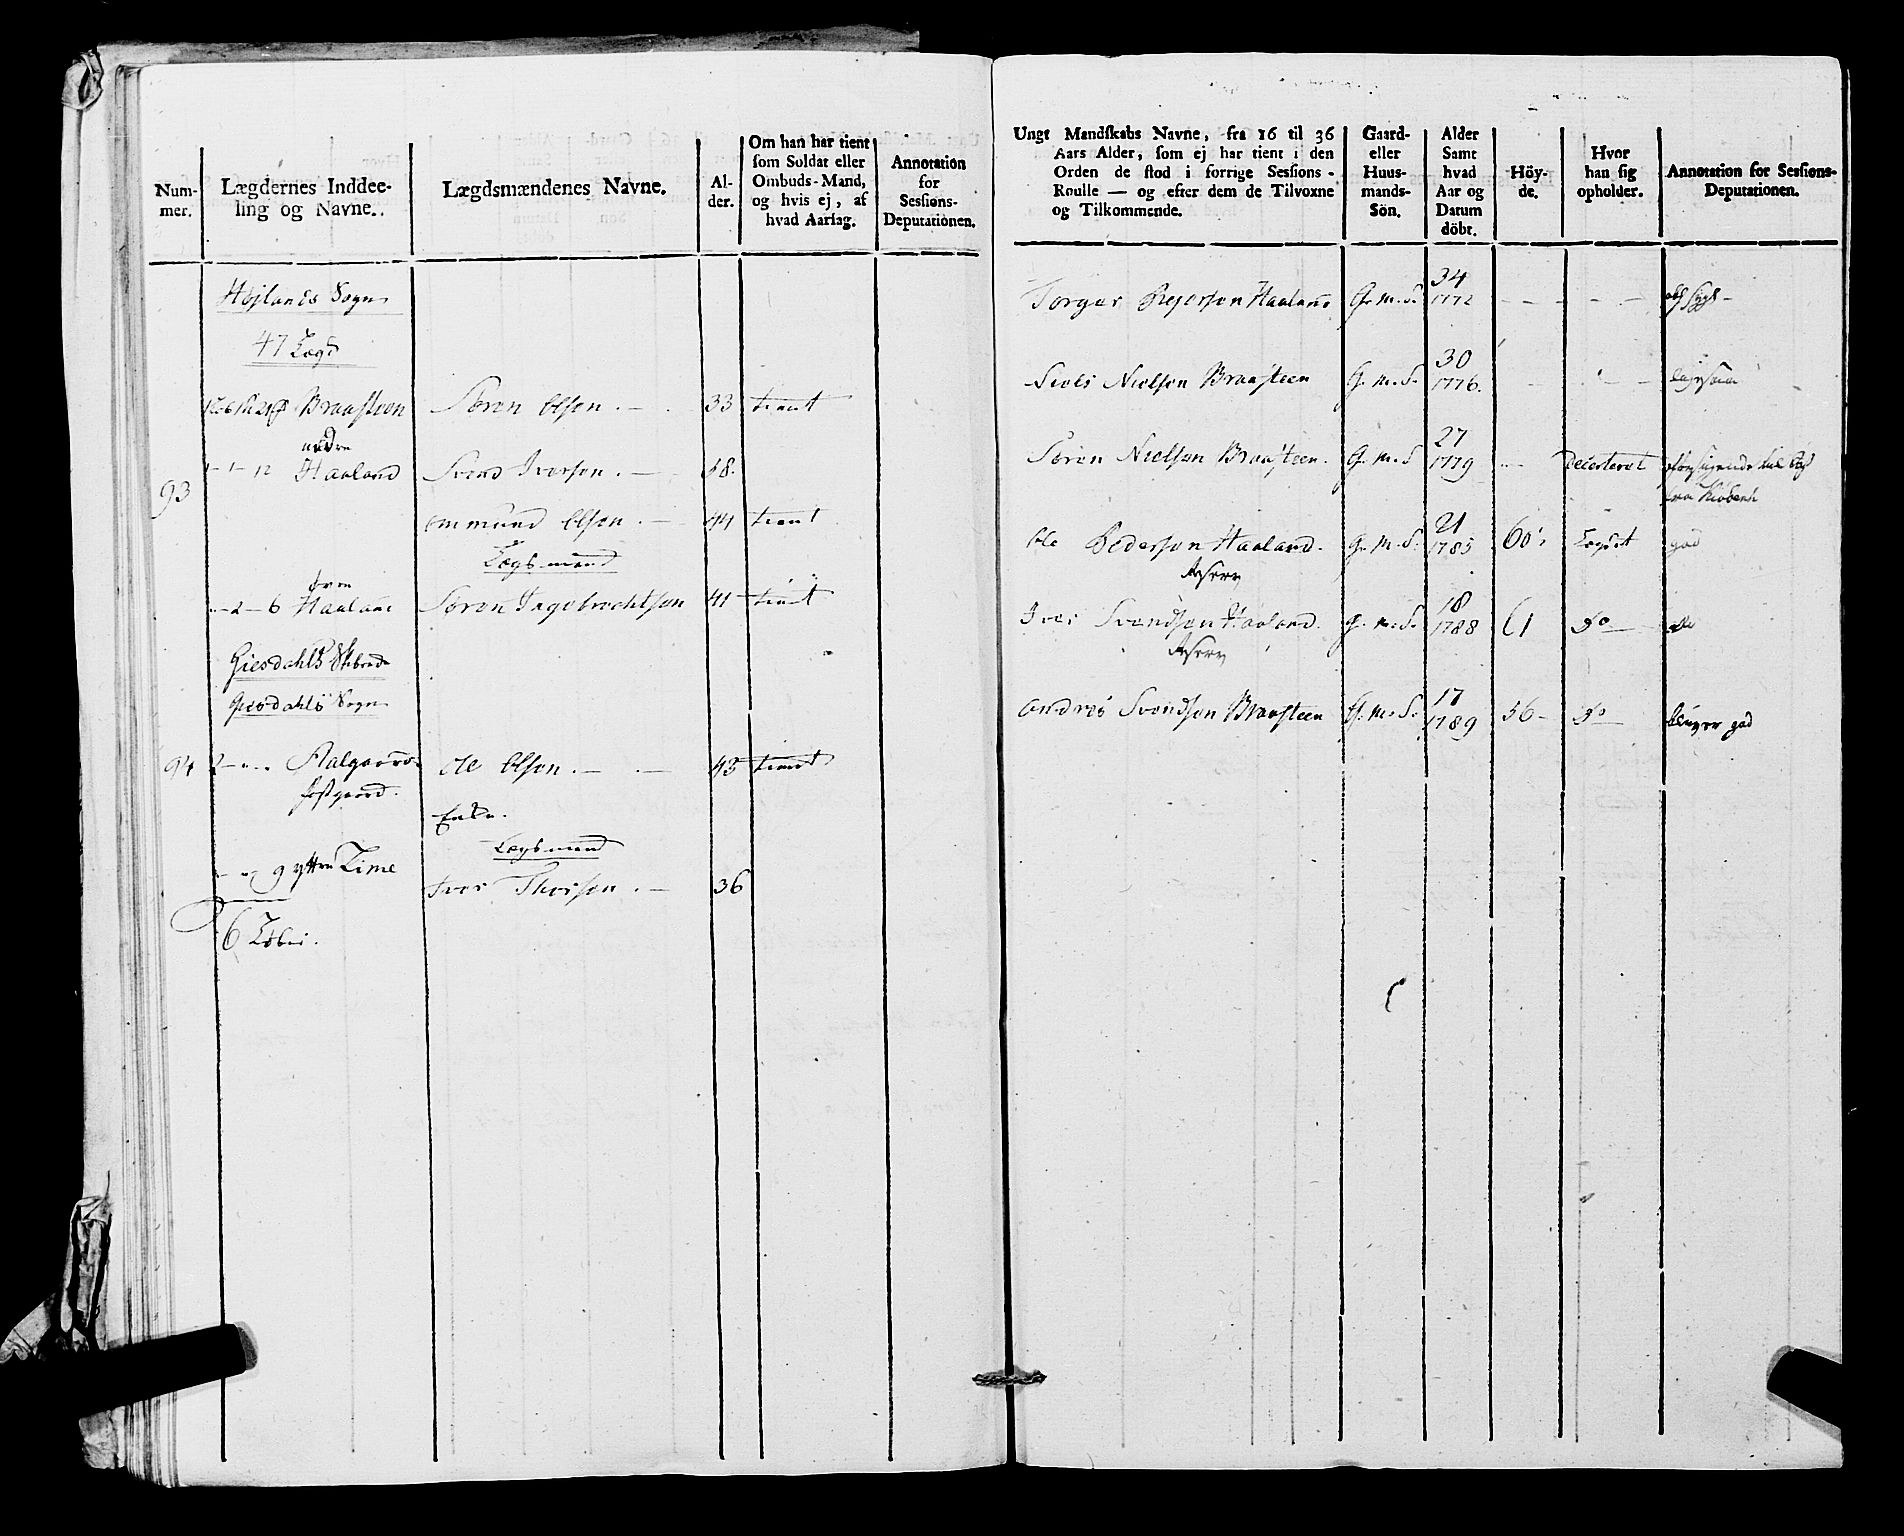 Num-
mer.
Lægdernes Inddee-
ling og Navne.
Lægdsmændenes Navne.
Al-
der.
Om han har tient
som Soldat eller
Ombuds-Mand,
og hvis ej, af
hvad Aarsag.
Annotation
for
Sessions-
Deputationen.
Højlands Sogn
47 Lægd
Braasteen Søren Olsen. 33 tient
nedre
93 1 - 12 Haaland Svend Iversen. 58.
Ommund Olsen. 44 tient
Lægsmand
øvre
2 - 6 Haaland Søren Ingebrechtsen 41 tient
Giesdahls Skibrede
Giesdahls Sogn
94 2 Aalgaard Ole Olsen. 43 tient
Enke.
Lægsmand
9 ytre Lime
Iver Thorsen. 36
6 Løber.
Ungt Mandskabs Navne, fra 16 til 36
Aars Alder, som ej har tient i den
Orden de stod i forrige Sessions-
Roulle — og efter dem de Tilvoxne
og Tilkommende.
Gaard-
eller
Huus-
mands-
Sön.
Alder
Samt
hvad
Aar og
Datum
döbt.
Höy-
de.
Hvor
han sig
opholder.
Annotation for Sessions-
Deputationen.
34
Torger Haaland G. M. S. 1772
30
Nielsen Braasteen G. M. S. 1776.
27
Søren Nielsen Braasteen. G. M. S 1779 Deserteret
21
Ole Pedersen Haaland. G. M. S. 1785 60 Lægdet god
18
Iver Svendsen Haaland. G. M. S. 1788 61 Do do
17
Andres Svendsen Braasteen G. M. S. 1789 56 Do bliver god